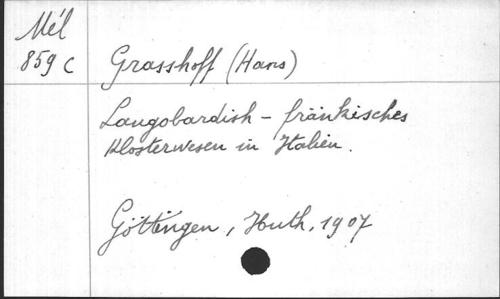 Mél
859 c
Grasshoff (Hans)
Langobardish - fränkisches
Klosterwesen in Italien.
Göttingen, Huth, 1907